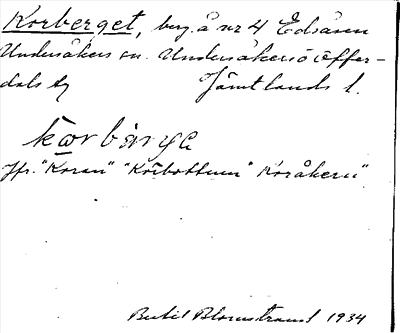 Korberget, berg. å nr 4 Edsåsen
Undersåkers sn. Undersåkers o Offer-
dals tg Jämtlands l.
kορbärγe
Jfr. "Koran" "Korbottnen" Koråkern"
Bertil Blomstrand 1934